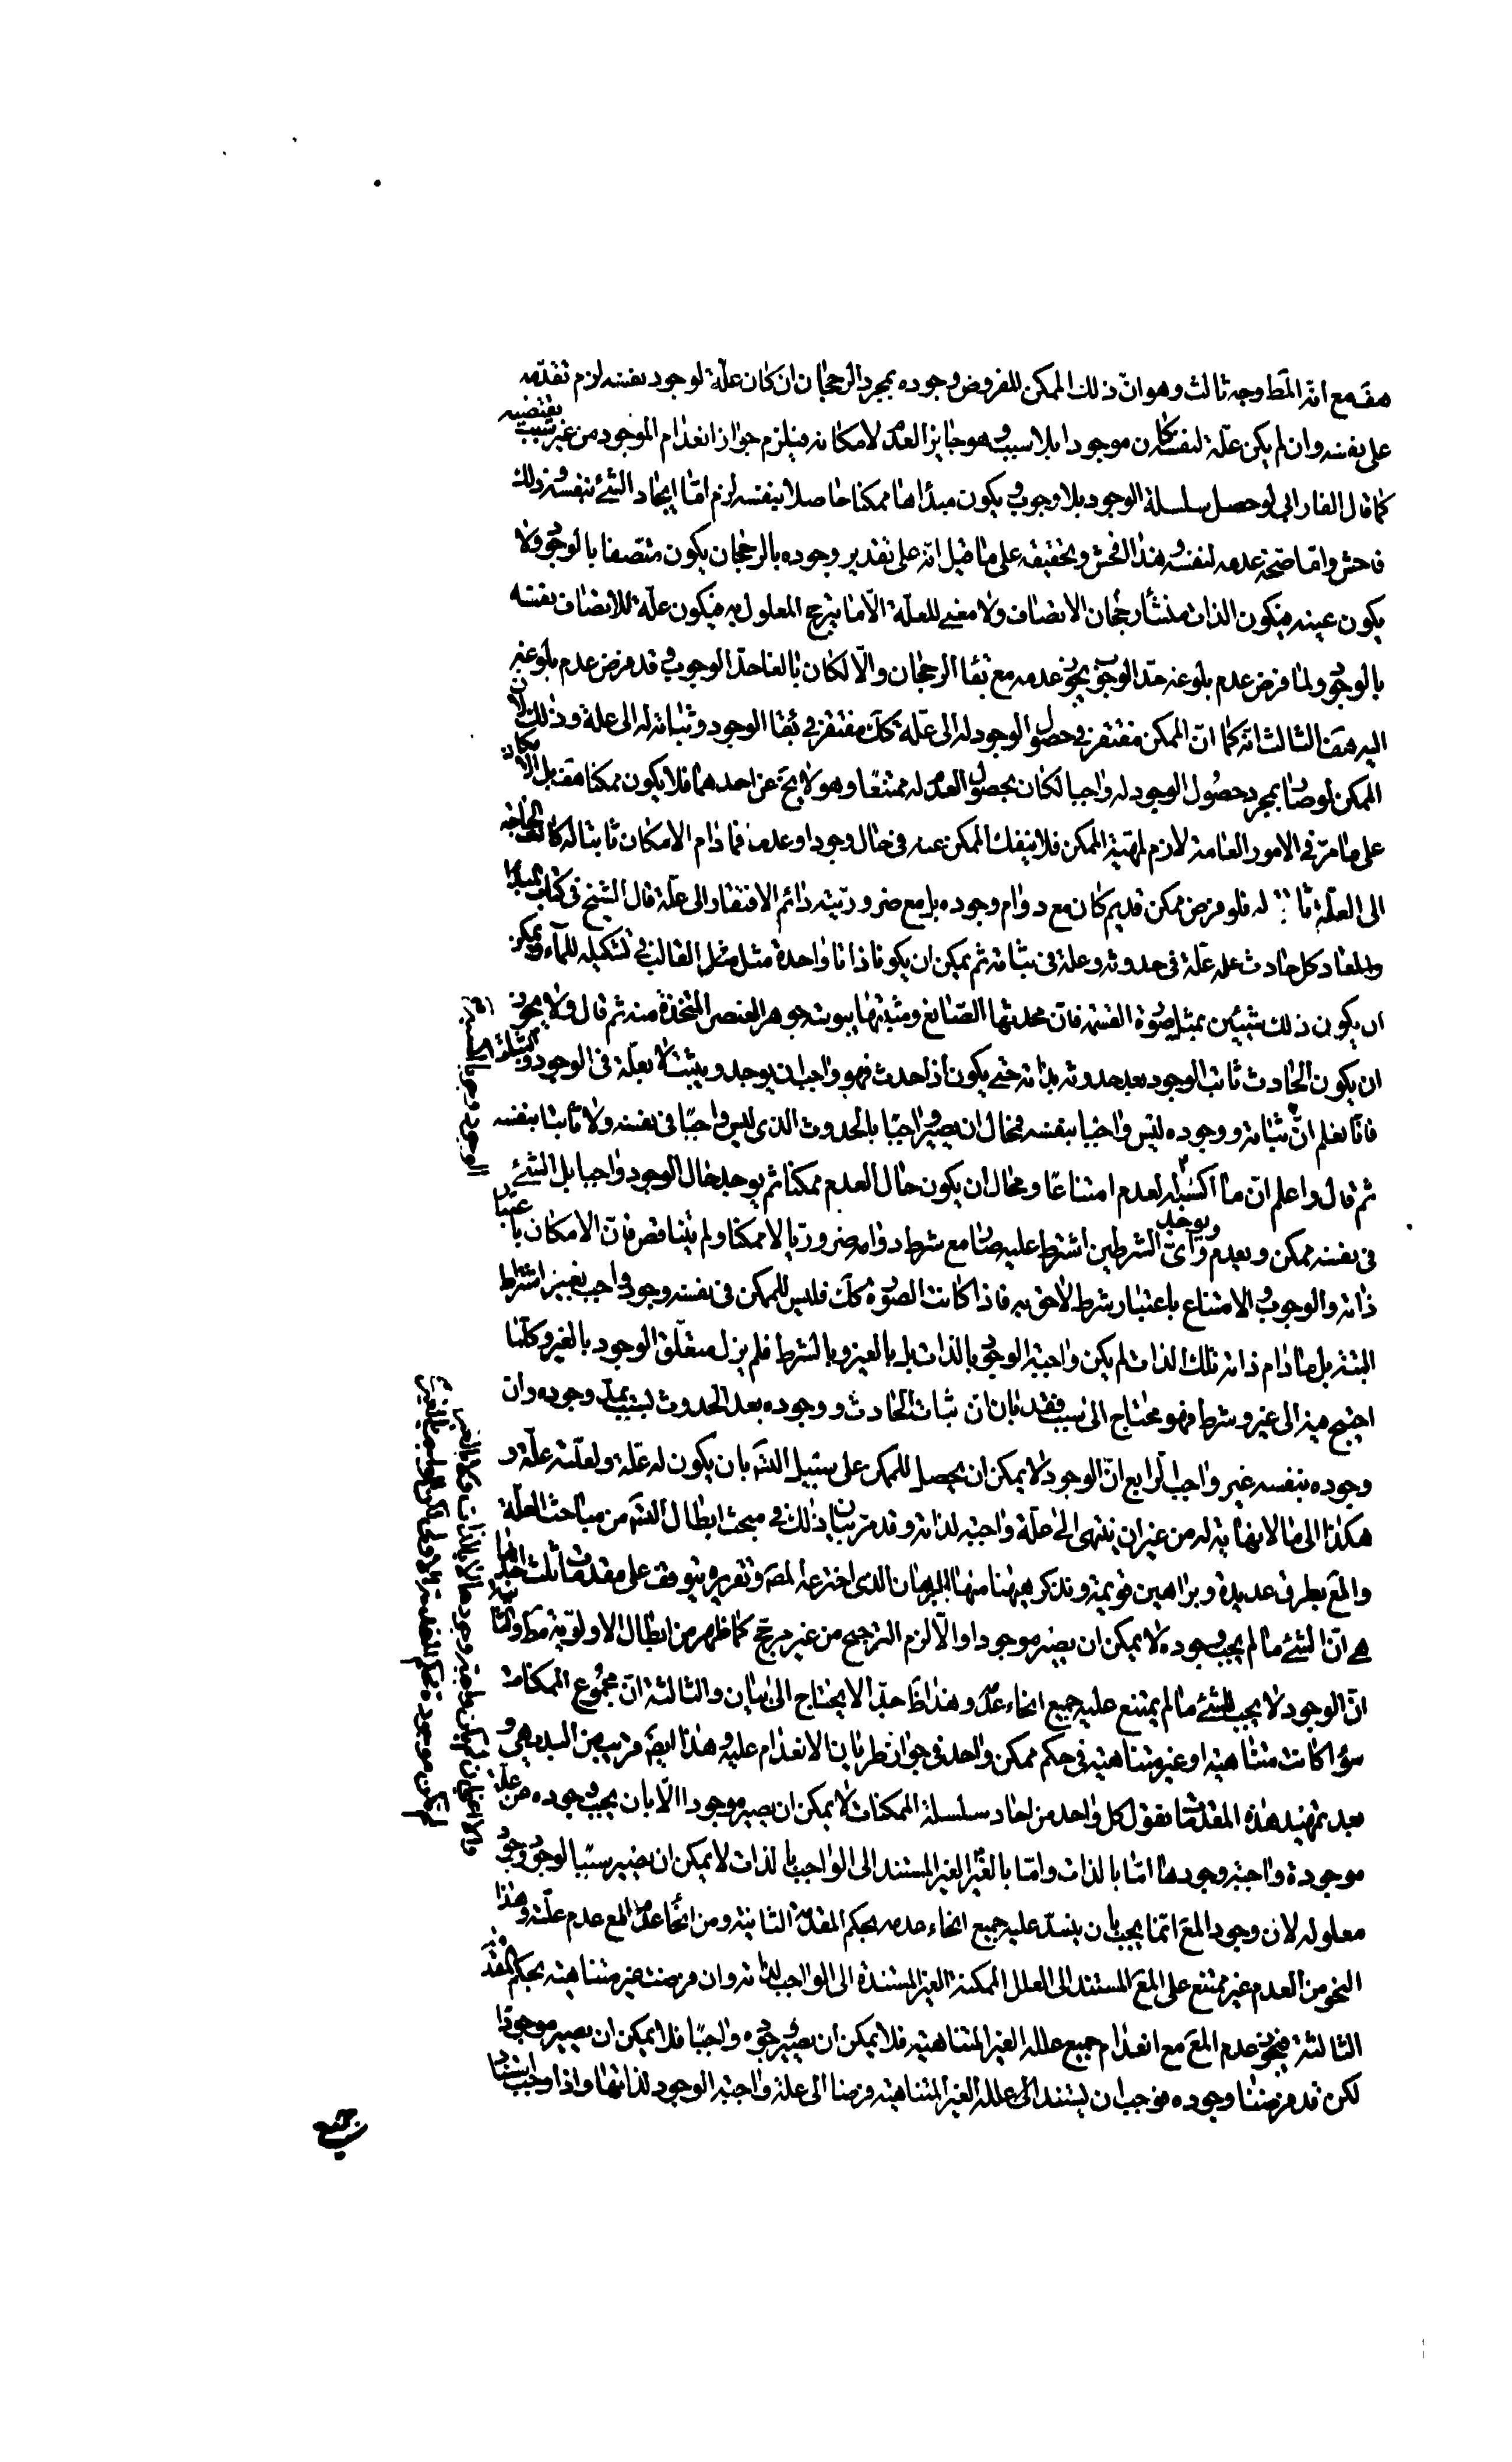 هف مع انه المط وجه ثالث وهو ان ذلك الممكن المفروض وجوده بمجرد الرجحان ان كان علة لوجود نفسه لزم تقدمه
على نفسه وان لم يكن علة لنفسه كان موجودا بلا سبب وهو جايز العدم لامكانه فيلزم جواز انعدام الموجود من غير سبب يقتضيه
كما قال الفارابي لو حصل سلسلة الوجود بلا وجوب ويكون مبدأها ممكنا حاصلا بنفسه لزم اما ايجاد الشئ نفسه وذلك
فاحش واما صحة عدمه لنفسه وهذا افحش وتحقيقه على ما قيل انه على تقدير وجوده بالرجحان يكون متصفا بالوجود ولا
يكون عينه فيكون الذات منشأ رجحان الاتصاف ولا معنى للعلة الا ما يترجح المعلول به فيكون علة للاتصاف نفسه
بالوجود ولما فرض عدم بلوغه حد الوجوب يجوز عدمه مع بقا الرجحان والا لكان بالغا حد الوجوب وقد فرض عدم بلوغه
اليه هف الثالث انه كما ان الممكن مفتقر في حصول الوجود له الى علة كك مفتقر في بقا الوجود وثباته له الى علة وذلك لان
الممكن لو صار بمجرد حصول الوجود له واجبا لكان بحصول العدم له ممتنعا وهو لا يخ عن احدهما فلا يكون ممكنا هف بل الامكان
على ما مر في الامور العامة لازم لمهية الممكن فلا ينفك الممكن عنه في حال وجود او عدم فما دام الامكان ثابتا له كانت الحاجة
الى العلة له فلو فرض ممكن قديم كان مع دوام وجوده بل مع ضروريته دائم الافتقار الى علة قال الشيخ في كتاب المبدأ
والمعاد كل حادث علة في حدوثه وعلة في ثباته ثم يمكن ان يكونا ذاتا واحدة مثل القالب في تشكيله للماء ويمكن
ان يكون ذلك شيئين مثل صورة الصنم فان محدثها الصانع ومثبتها يبوسة جوهر العنصر المتخذة منه ثم قال ولا يجوز
ان يكون الحادث ثابت الوجود بعد حدوثه بذاته حتى يكون اذا حدث فهو واجب ان يوجد ويثبت لا بعلة في الوجود
فانا نعلم ان ثباته ووجوده ليس واجبا بنفسه فمحال ان يصير واجبا بالحدوث الذي ليس واجبا في نفسه ولا ثابتا بنفسه
ثم قال واعلم ان ما اكسبه العدم امتناعا ومحال ان يكون حال العدم ممكنا ثم يوجد حال الوجود واجبا بل الشئ
في نفسه ممكن ويعدم ويوجد واى الشرطين اشترط عليه صار مع شرط دوامه ضروريا لا ممكنا ولم يتناقض فان الامكان باعتبار
ذاته والوجوب والامتناع باعتبار شرط لاحق به فاذا كانت الصورة كك فليس للممكن في نفسه وجود واجب بغير اشتراط
البتة بل ما دام ذاته تلك الذات لم يكن واجبة الوجود بالذات بل بالغير وبالشرط فلم يزل متعلق الوجود بالغير وكلما
احتيج فيه الى غير وشرط فهو محتاج الى سبب فقد بان ان ثبات الحادث ووجوده بعد الحدوث لسبب يمد وجوده وان
وجوده بنفسه غير واجب الرابع ان الوجود لا يمكن ان يحصل للممكن على سبيل التسه بان يكون له علة ولعلته علة و
هكذا الى ما لا نهاية له من غير ان ينتهى الى علة واجبة لذاته وقد مر بيان ذلك في مبحث ابطال التسه من مباحث العلة
والمع بطرق عديدة وبراهين قويمة ونذكر ههنا منها البرهان الذى اخترعه المصه وتقريره يتوقف على مقدمات ثلث احديها
هى ان الشئ ما لم يجب وجوده لا يمكن ان يصير موجودا والا لزم الترجح من غير مرجح كما ظهر من ابطال الاولوية مط والثانية
ان الوجود لا يجب للشئ ما لم يمتنع عليه جميع انحاء عدمه وهذا ظ جدا لا يحتاج الى بيان والثالثة ان مجموع الممكنات
سواء كانت متناهية او غير متناهية في حكم ممكن واحد في جواز طريان الانعدام عليه وهذا ايض قريب من البديهى و
بعد تمهيد هذه المقدمات نقول كل واحد من احاد سلسلة الممكنات لا يمكن ان يصير موجودا الا بان يجب وجوده من علة
موجودة واجبة وجودها اما بالذات واما بالغير الغير المستند الى الواجب بالذات لا يمكن ان يصير سببا لوجوب وجود
معلوله لان وجود المع انما يجب بان ينسد عليه جميع انحاء عدمه بحكم المقدمة الثانية ومن انحاء عدم المع عدم علته وهذا
النحو من العدم غير ممتنع على المع المستند الى العلل الممكنة الغير المستندة الى الواجب لذاته وان فرضت غير متناهية بحكم المقدمة
الثالثة فيجوز عدم المع مع انعدام جميع علله الغير المتناهية فلا يمكن ان يصير وجوده واجبا فلا يمكن ان يصير موجودا
لكن قد فرضنا وجوده فوجب ان يستند الى علله الغير المتناهية فرضا الى علة واجبة الوجود لذاتها واذا وجب استناد
جميع